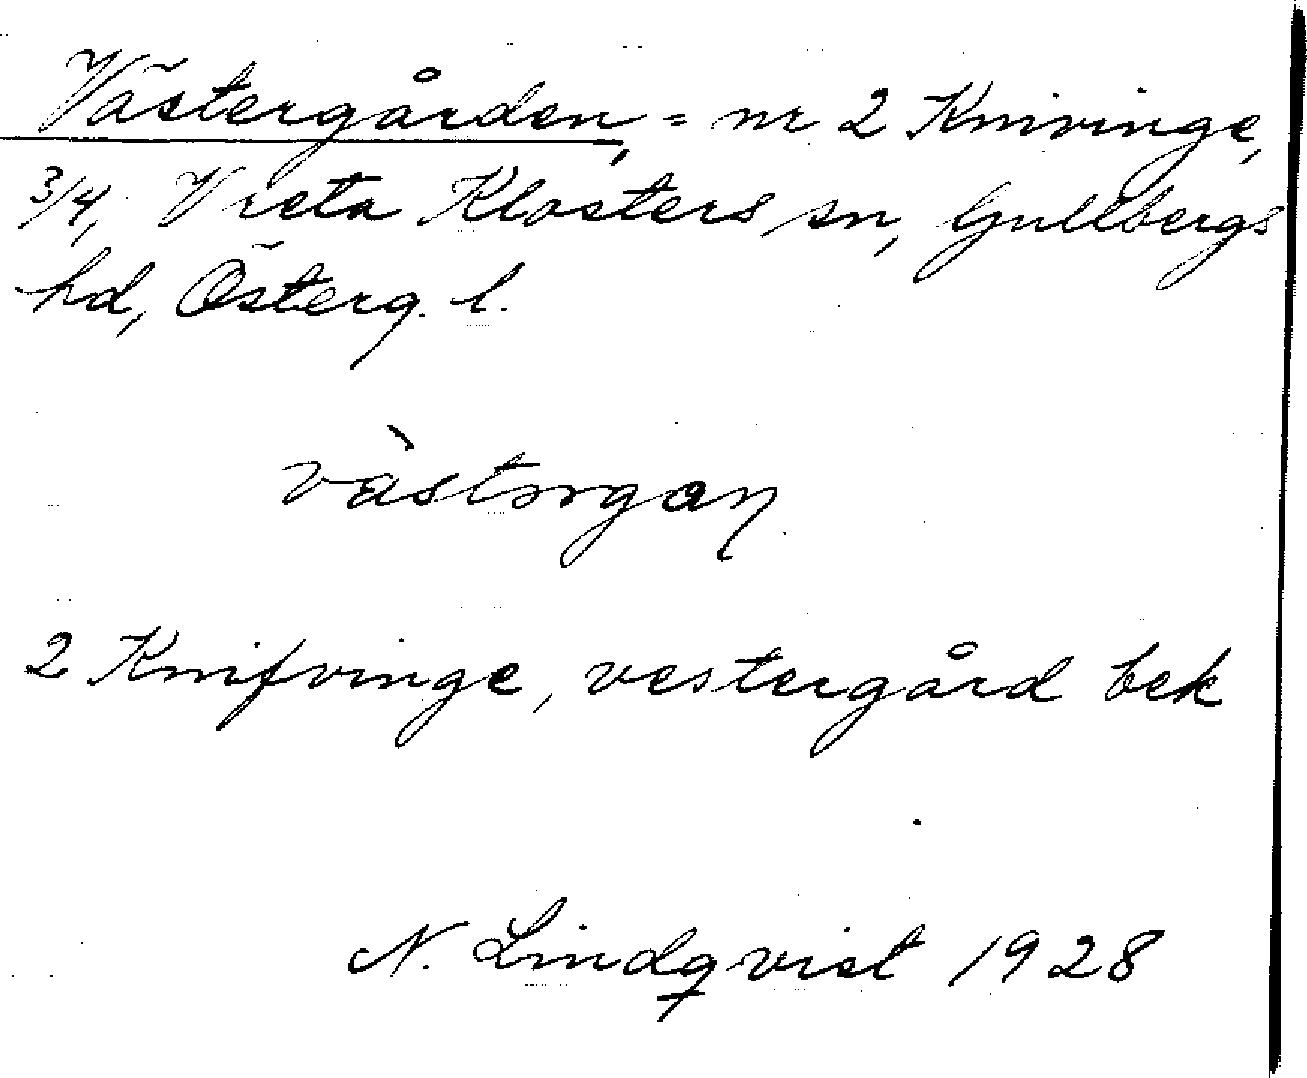 Västergården, = nr 2 Knivinge,
3/4, Vreta Klosters sn, Gullbergs
hd, Österg. l.
2 Knifvinge, vestergård bek
N. Lindqvist 1928